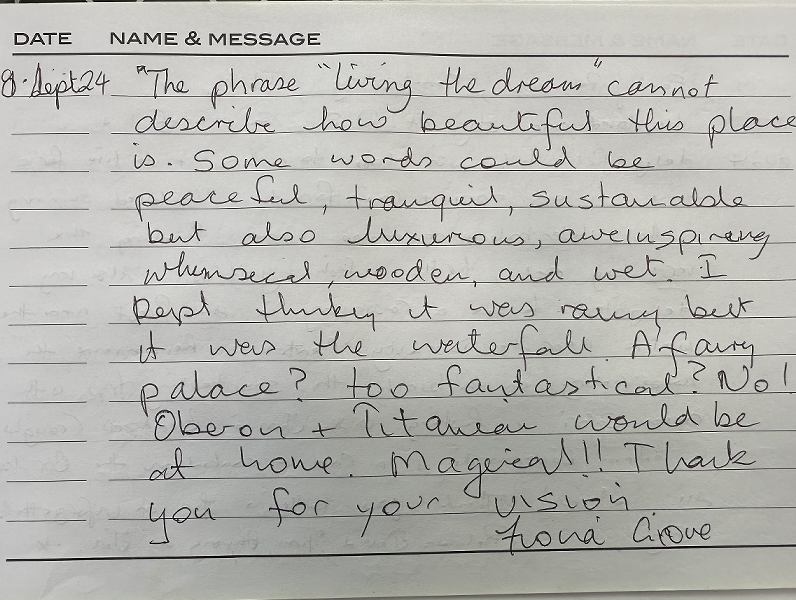 DATE NAME & MESSAGE
8·Sept24 "The phrase "living the dream" cannot
describe how beautiful this place
is. Some words could be
peaceful, tranquil, sustainable
but also luxurious, aweinspiring
whimsical, wooden, and wet. I
kept thinking it was rainy but
it was the waterfall. A fairy
palace? too fantastical? No!
Oberon + Titanian would be
at home. Magical!!! Thank
you for your vision
Fiona Grove